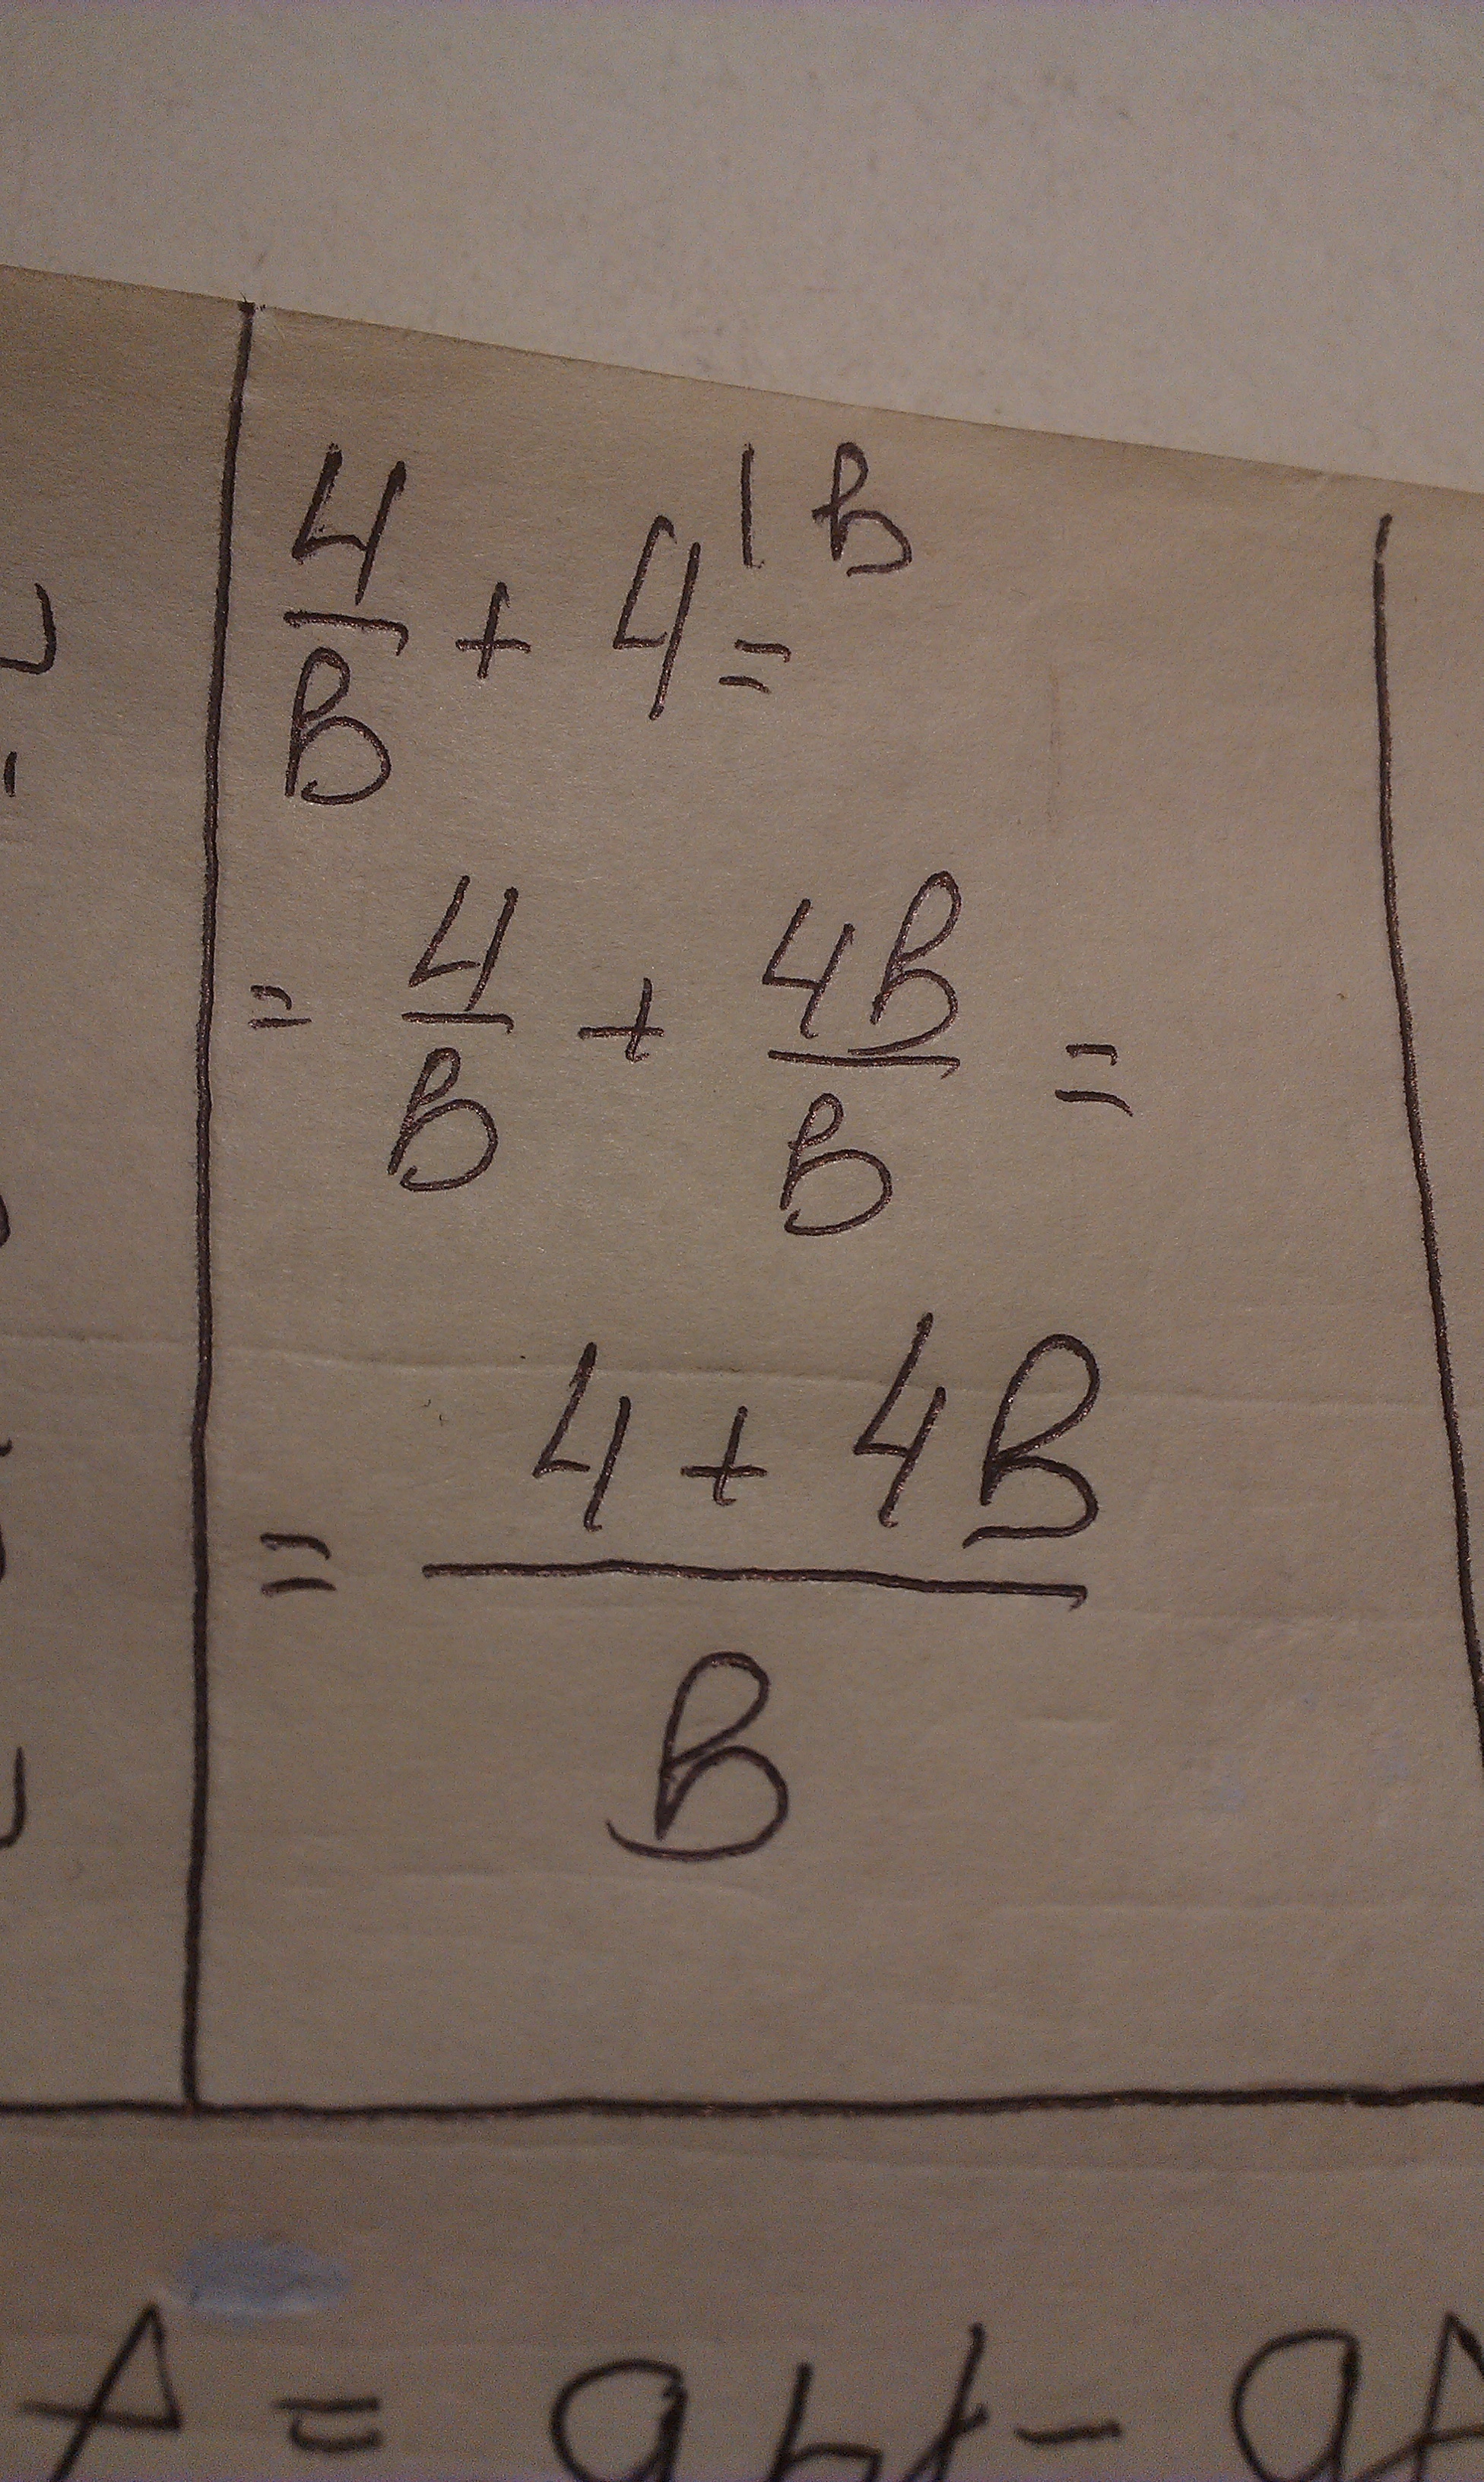 4/B + 4 | B =
= 4/B + 4B/B =
= (4 + 4B)/B